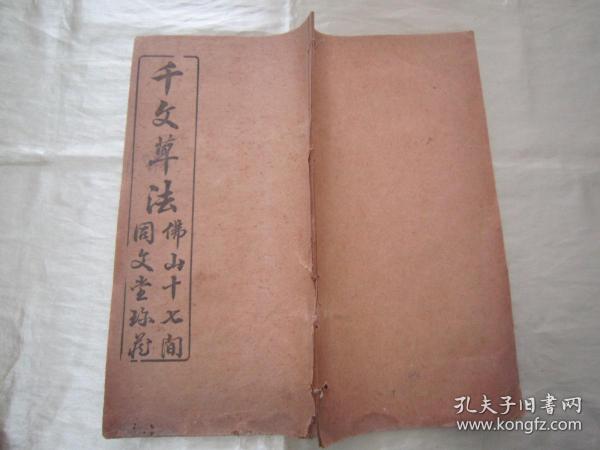 千文草法
佛山十七間
同文堂珍藏
孔夫子旧書网
www.kongfz.com